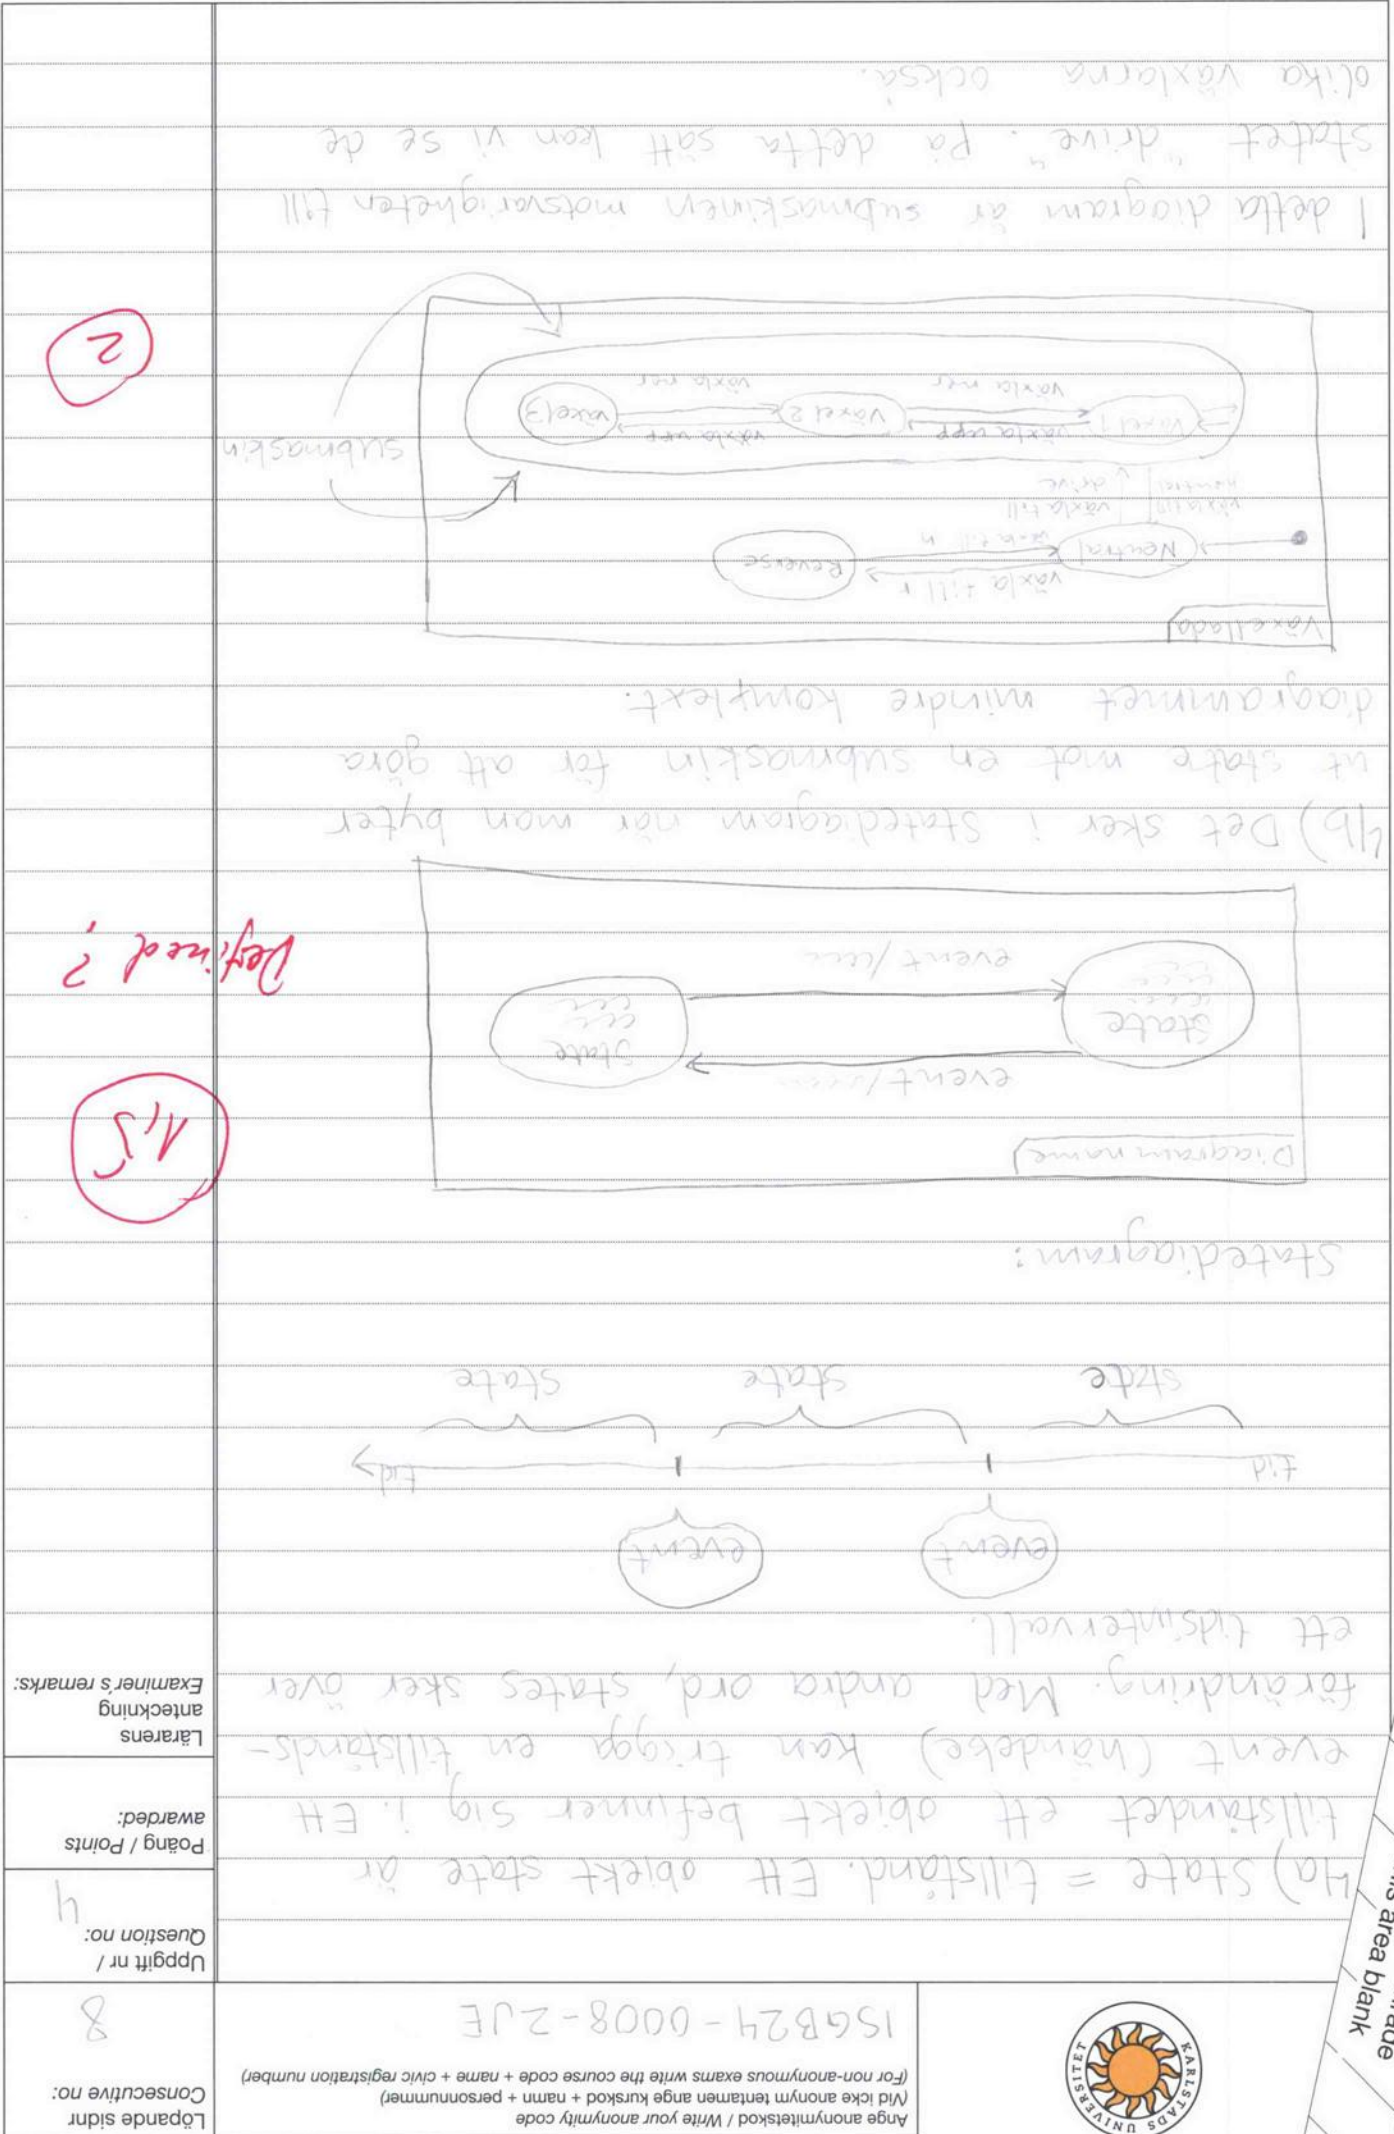 KARLSTADS UNIVERSITET
area blank
Ange anonymitetskod / Write your anonymity code
(Vid icke anonym tentamen ange kurskod + namn + personnummer)
(For non-anonymous exams write the course code + name + civic registration number)
ISGB24-0008-2JE
Löpande sidnr
Consecutive no:
8
Uppgift nr /
Question no:
4
Poäng / Points
awarded:
Lärarens
anteckning
Examiner's remarks:
4a) State = tillstånd. Ett objekt state är
tillståndet ett objekt befinner sig i. Ett
event (händelse) kan trigga en tillstånds-
förändring. Med andra ord, states sker över
ett tidsintervall.
event event
tid tid
state state state
Statediagram:
Diagram name
event/
State State
event/
1,5
Defined?
4b) Det sker i Statediagram när man byter
ut state mot en submaskin för att göra
diagrammet mindre komplext.
Växellåda
växla till r
Neutral Reverse
växla till n
växla till växla till
neutral drive
submaskin
växla upp växla upp
växel 1 växel 2 växel 3
växla ner växla ner
2
I detta diagram är submaskinen motsvarigheten till
statet "drive". På detta sätt kan vi se de
olika växlarna också.